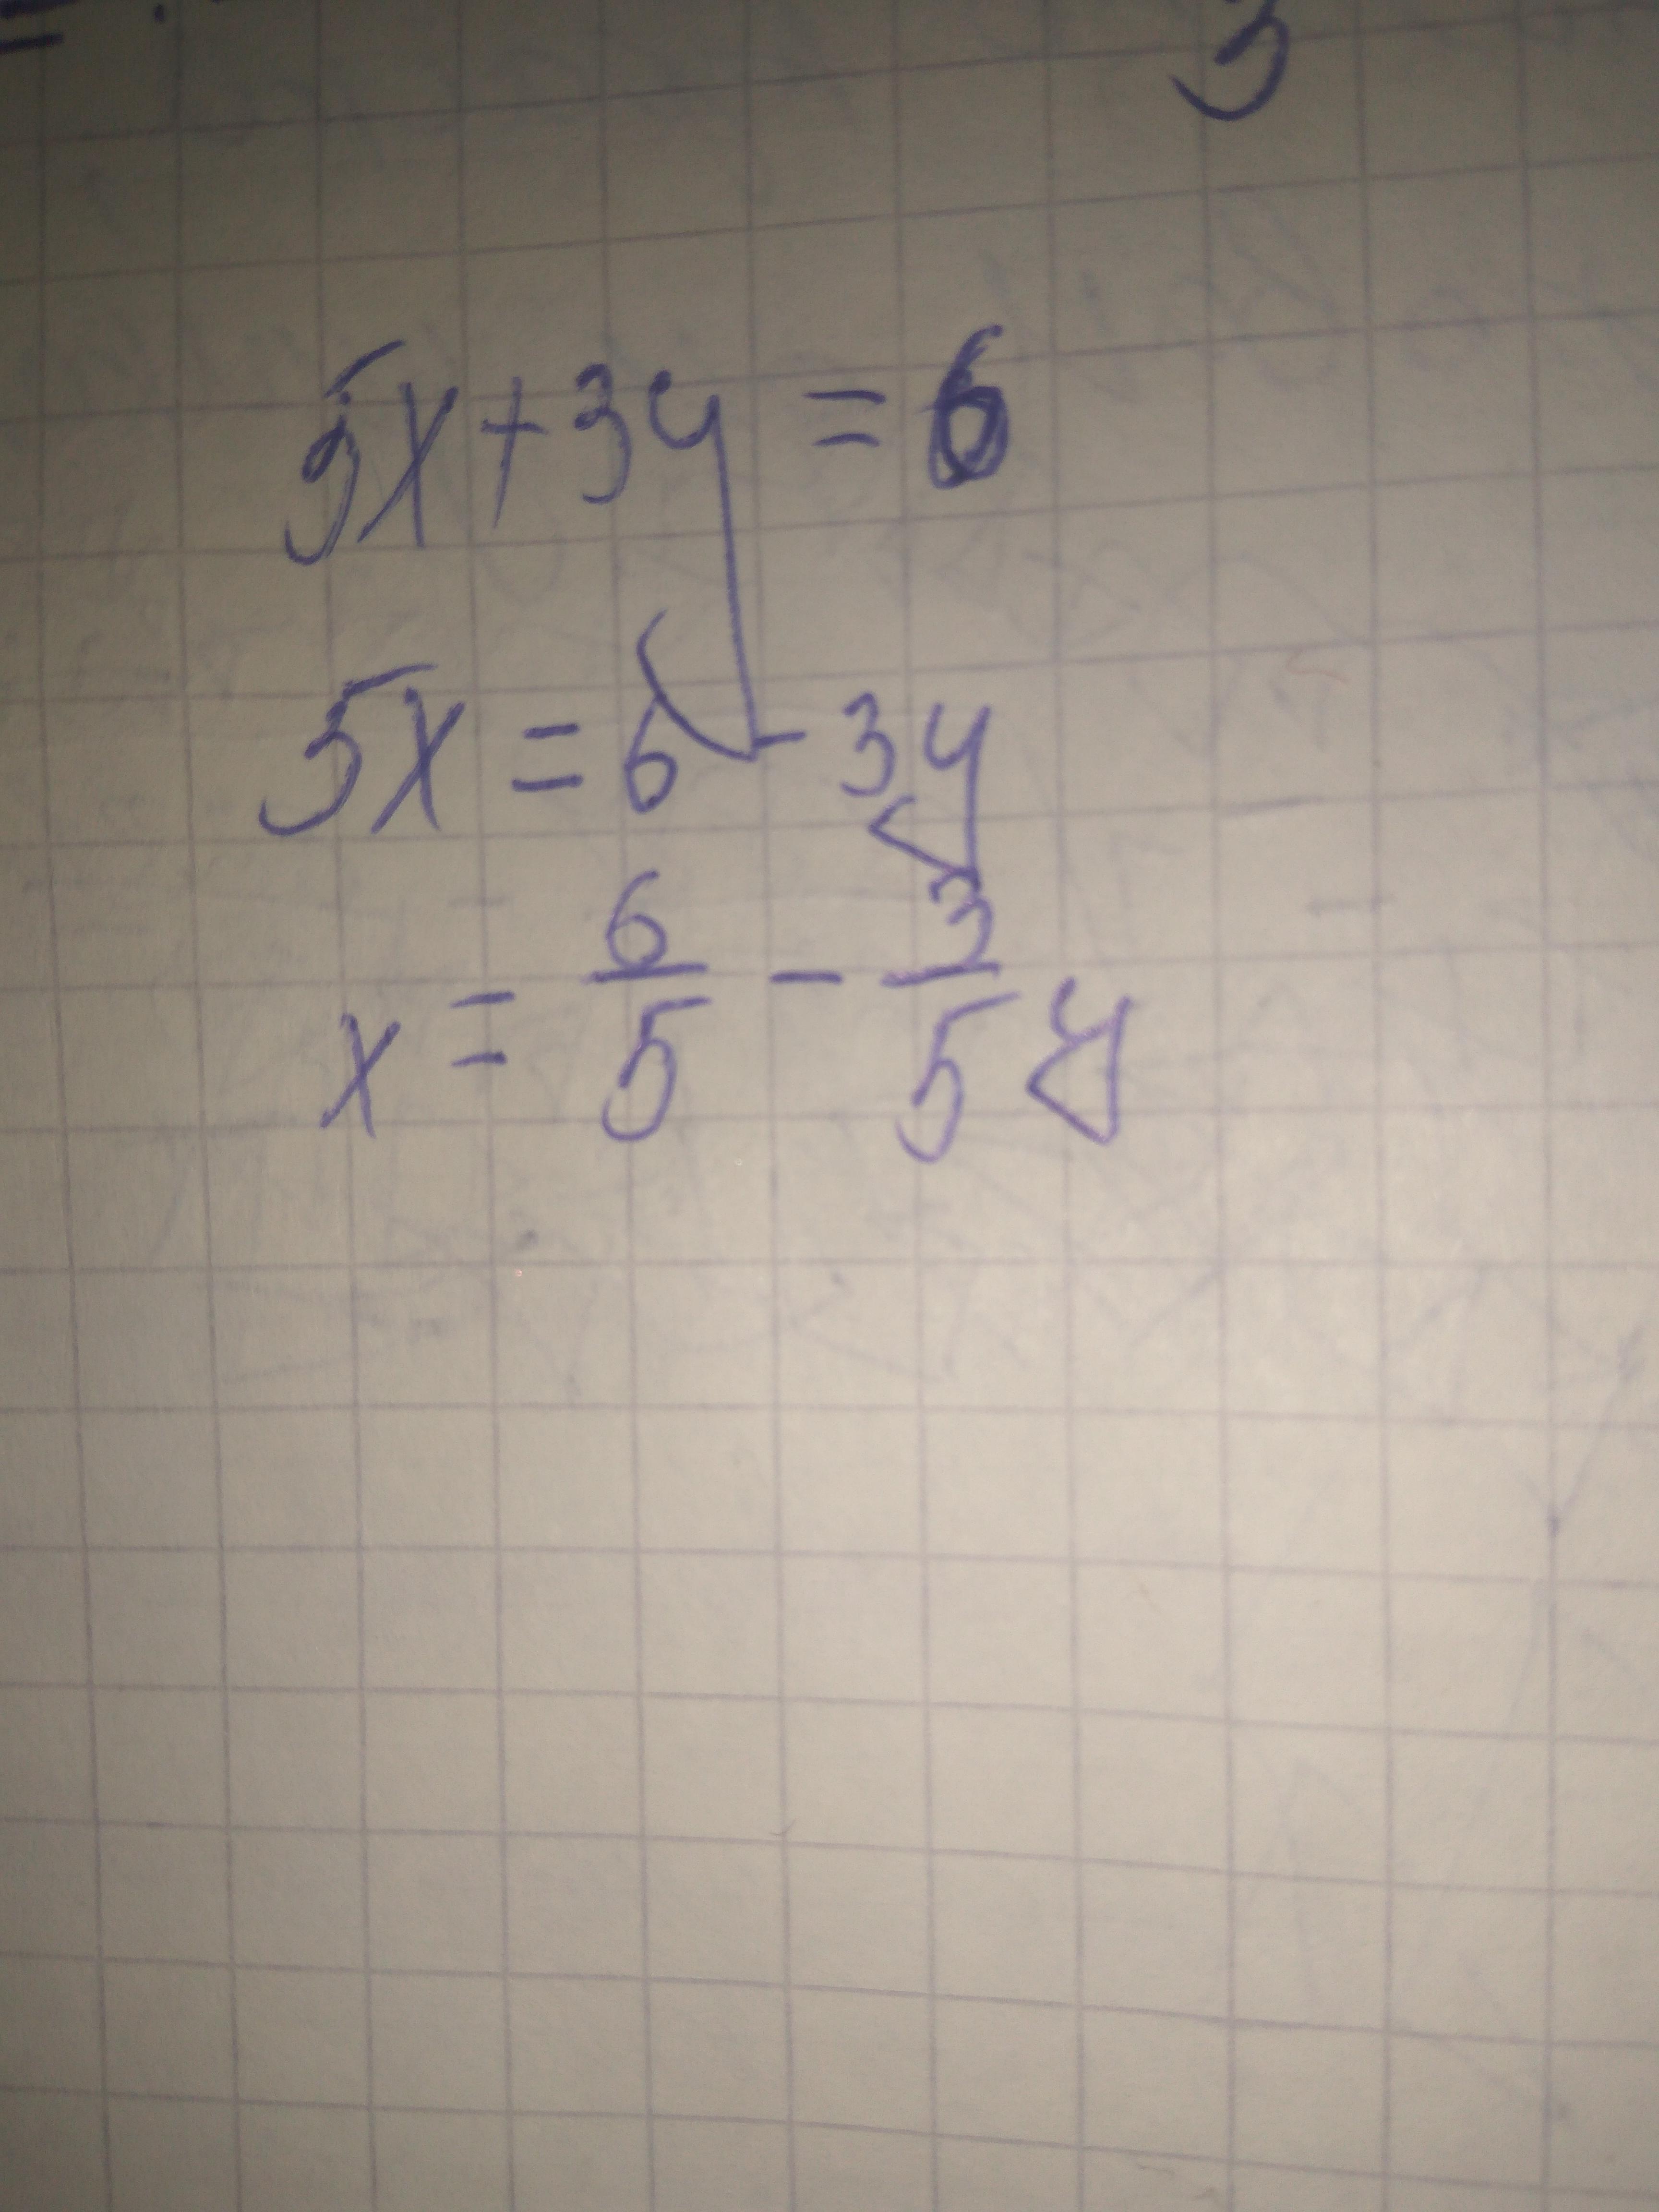 3
5x+3y = 6
5x = 6 - 3y
x = 6/5 - 3/5 y